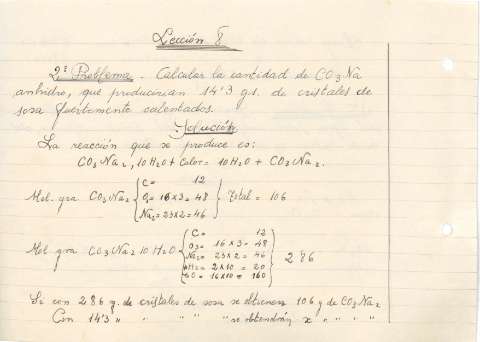 Lección 8
2º Problema. Calcular la cantidad de CO3Na
anhidro, que producirían 14'3 gs. de cristales de
sosa fuertemente calentados.
Solución
La reacción que se produce es:
CO3Na2, 10H2O + Calor = 10H2O + CO3Na2.
Mol. gra CO3Na2 { C = 12
O3 = 16 x 3 = 48
Na2 = 23 x 2 = 46 } Total = 106
Mol gra CO3Na2 10H2O { C = 12
O3 = 16 x 3 = 48
Na2 = 23 x 2 = 46
2 x 10 = 20
16 x 10 = 160 } 286
Si con 286 g. de cristales de sosa se obtienen 106 g de CO3Na2
Con 14'3 " " " " " se obtendrán x " " "